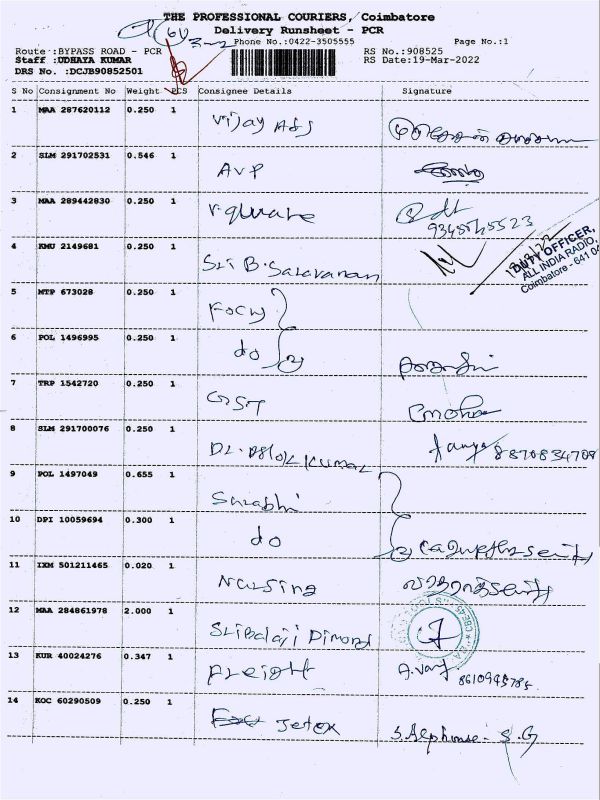 THE PROFESSIONAL COURIERS, Coimbatore
Delivery Runsheet - PCR
Phone No.:0422-3505555 Page No.:1
Route :BYPASS ROAD - PCR RS No.:908525
Staff :UDHAYA KUMAR RS Date:19-Mar-2022
DRS No. :DCJB90852501
S No Consignment No Weight PCS Consignee Details Signature
1 MAA 287620112 0.250 1 Vijay Ads
2 SLM 291702531 0.546 1 AVP
3 MAA 289442830 0.250 1 V.square
4 KMU 2149681 0.250 1 Sri B. Saravanan
DUTY OFFICER,
ALL INDIA RADIO,
Coimbatore - 641 04
5 MTP 673028 0.250 1
6 POL 1496995 0.250 1 do
7 TRP 1542720 0.250 1 GST
8 SLM 291700076 0.250 1 Dr. Kumar 8870834708
9 POL 1497049 0.655 1 Surabhi
10 DPI 10059694 0.300 1 do
11 IXM 501211465 0.020 1 Nursing
12 MAA 284861978 2.000 1 Sribalaji Dimond
13 KUR 40024276 0.347 1 Freight
14 KOC 60290509 0.250 1 Jetex S. Alphonse. S.G